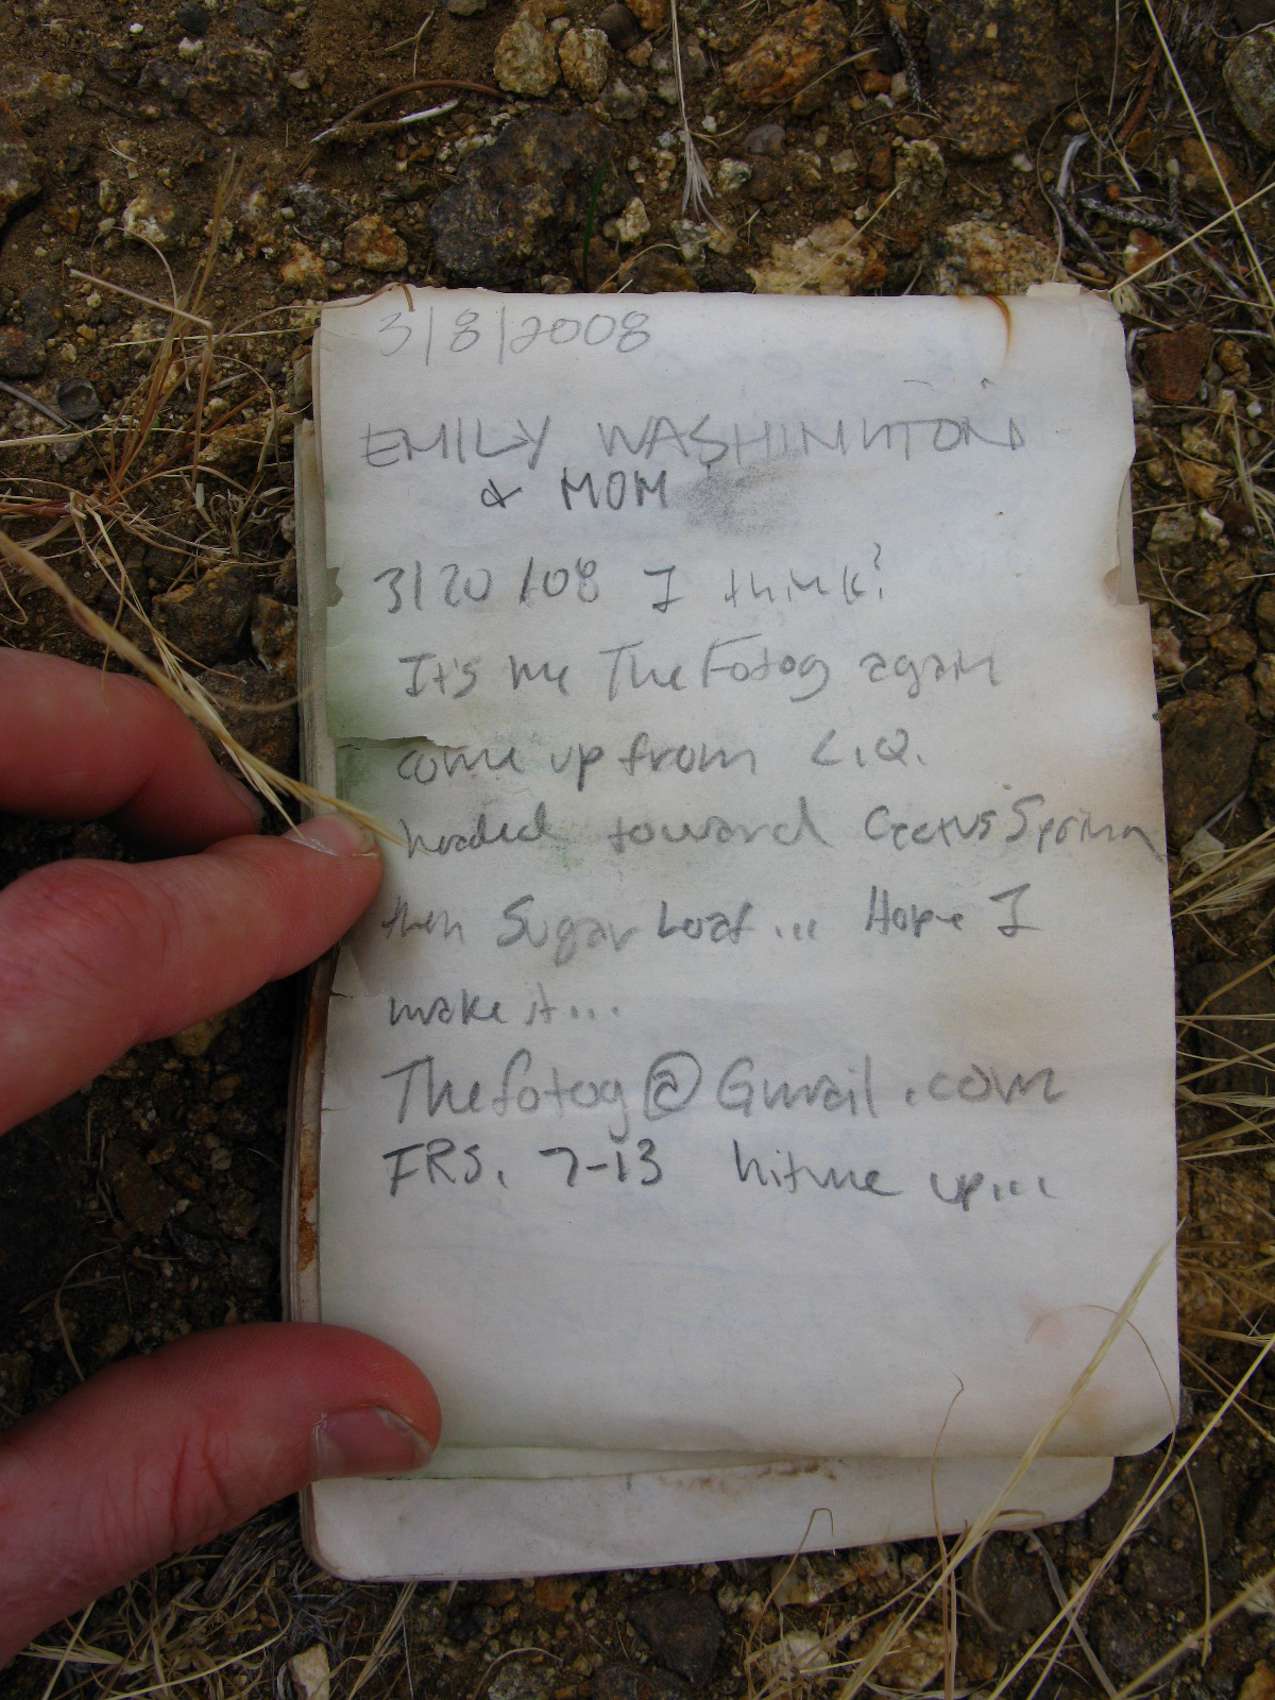 3/8/2008
EMILY WASHINGTON
& MOM
3/20/08 I think?
It's me TheFotog again
come up from L.Q.
headed toward Cactus Spring
then Sugar Loaf... Hope I
make it...
Thefotog@Gmail.com
FRS. 7-13 hit me up...